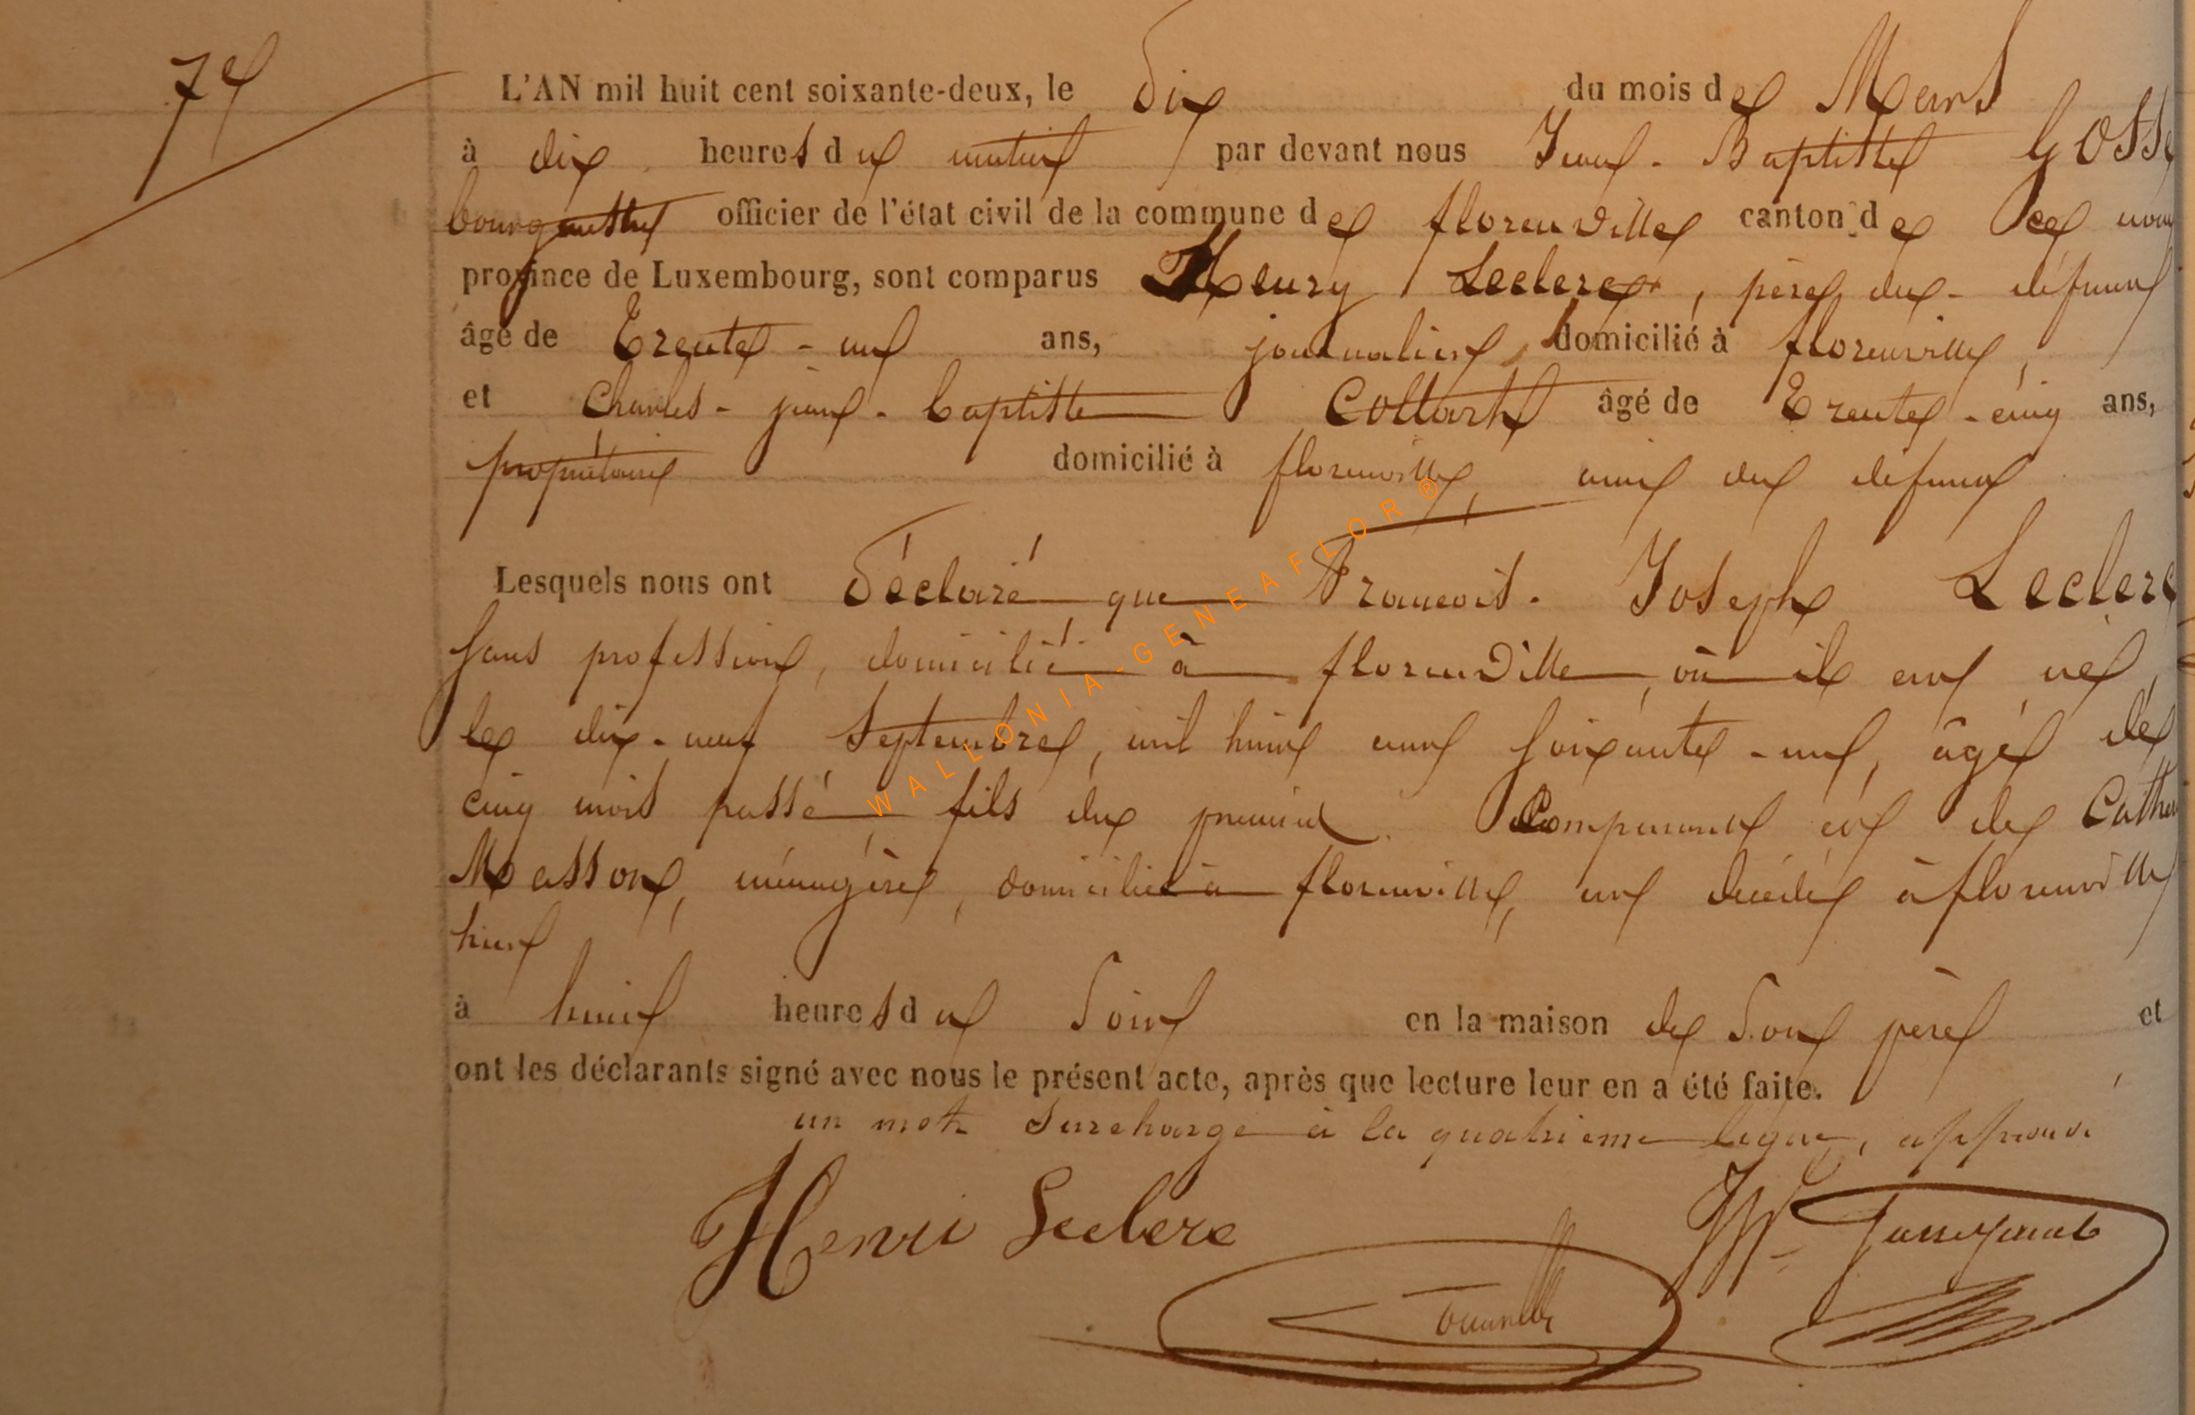 7e
L'AN mil huit cent soixante-deux, le dix du mois de Mars
à dix heures du matin par devant nous Jean-Baptiste Gosse
bourgmestre officier de l'état civil de la commune de florenville canton de ce nom
province de Luxembourg, sont comparus Henry Leclerc, père du défunt
âgé de Trente-un ans, journalier, domicilié à florenville,
et Charles-jean-baptiste Collart âgé de Trente-cinq ans,
propriétaire domicilié à florenville, ami du défunt
Lesquels nous ont déclaré que François-Joseph Leclerc
sans profession, domicilié à florenville, où il est né,
le dix-neuf Septembre, mil huit cent soixante-un, âgé de
cinq mois passé fils du premier Comparant et de Cathe
Masson, ménagère, domiciliée à florenville, est décédé à florenville
hier
à huit heures du Soir en la maison de Son père et
ont les déclarants signé avec nous le présent acte, après que lecture leur en a été faite.
un mot surchargé à la quatrième ligne, approuvé
Henri Leclerc
WALLONIA-GENEAFLOR®